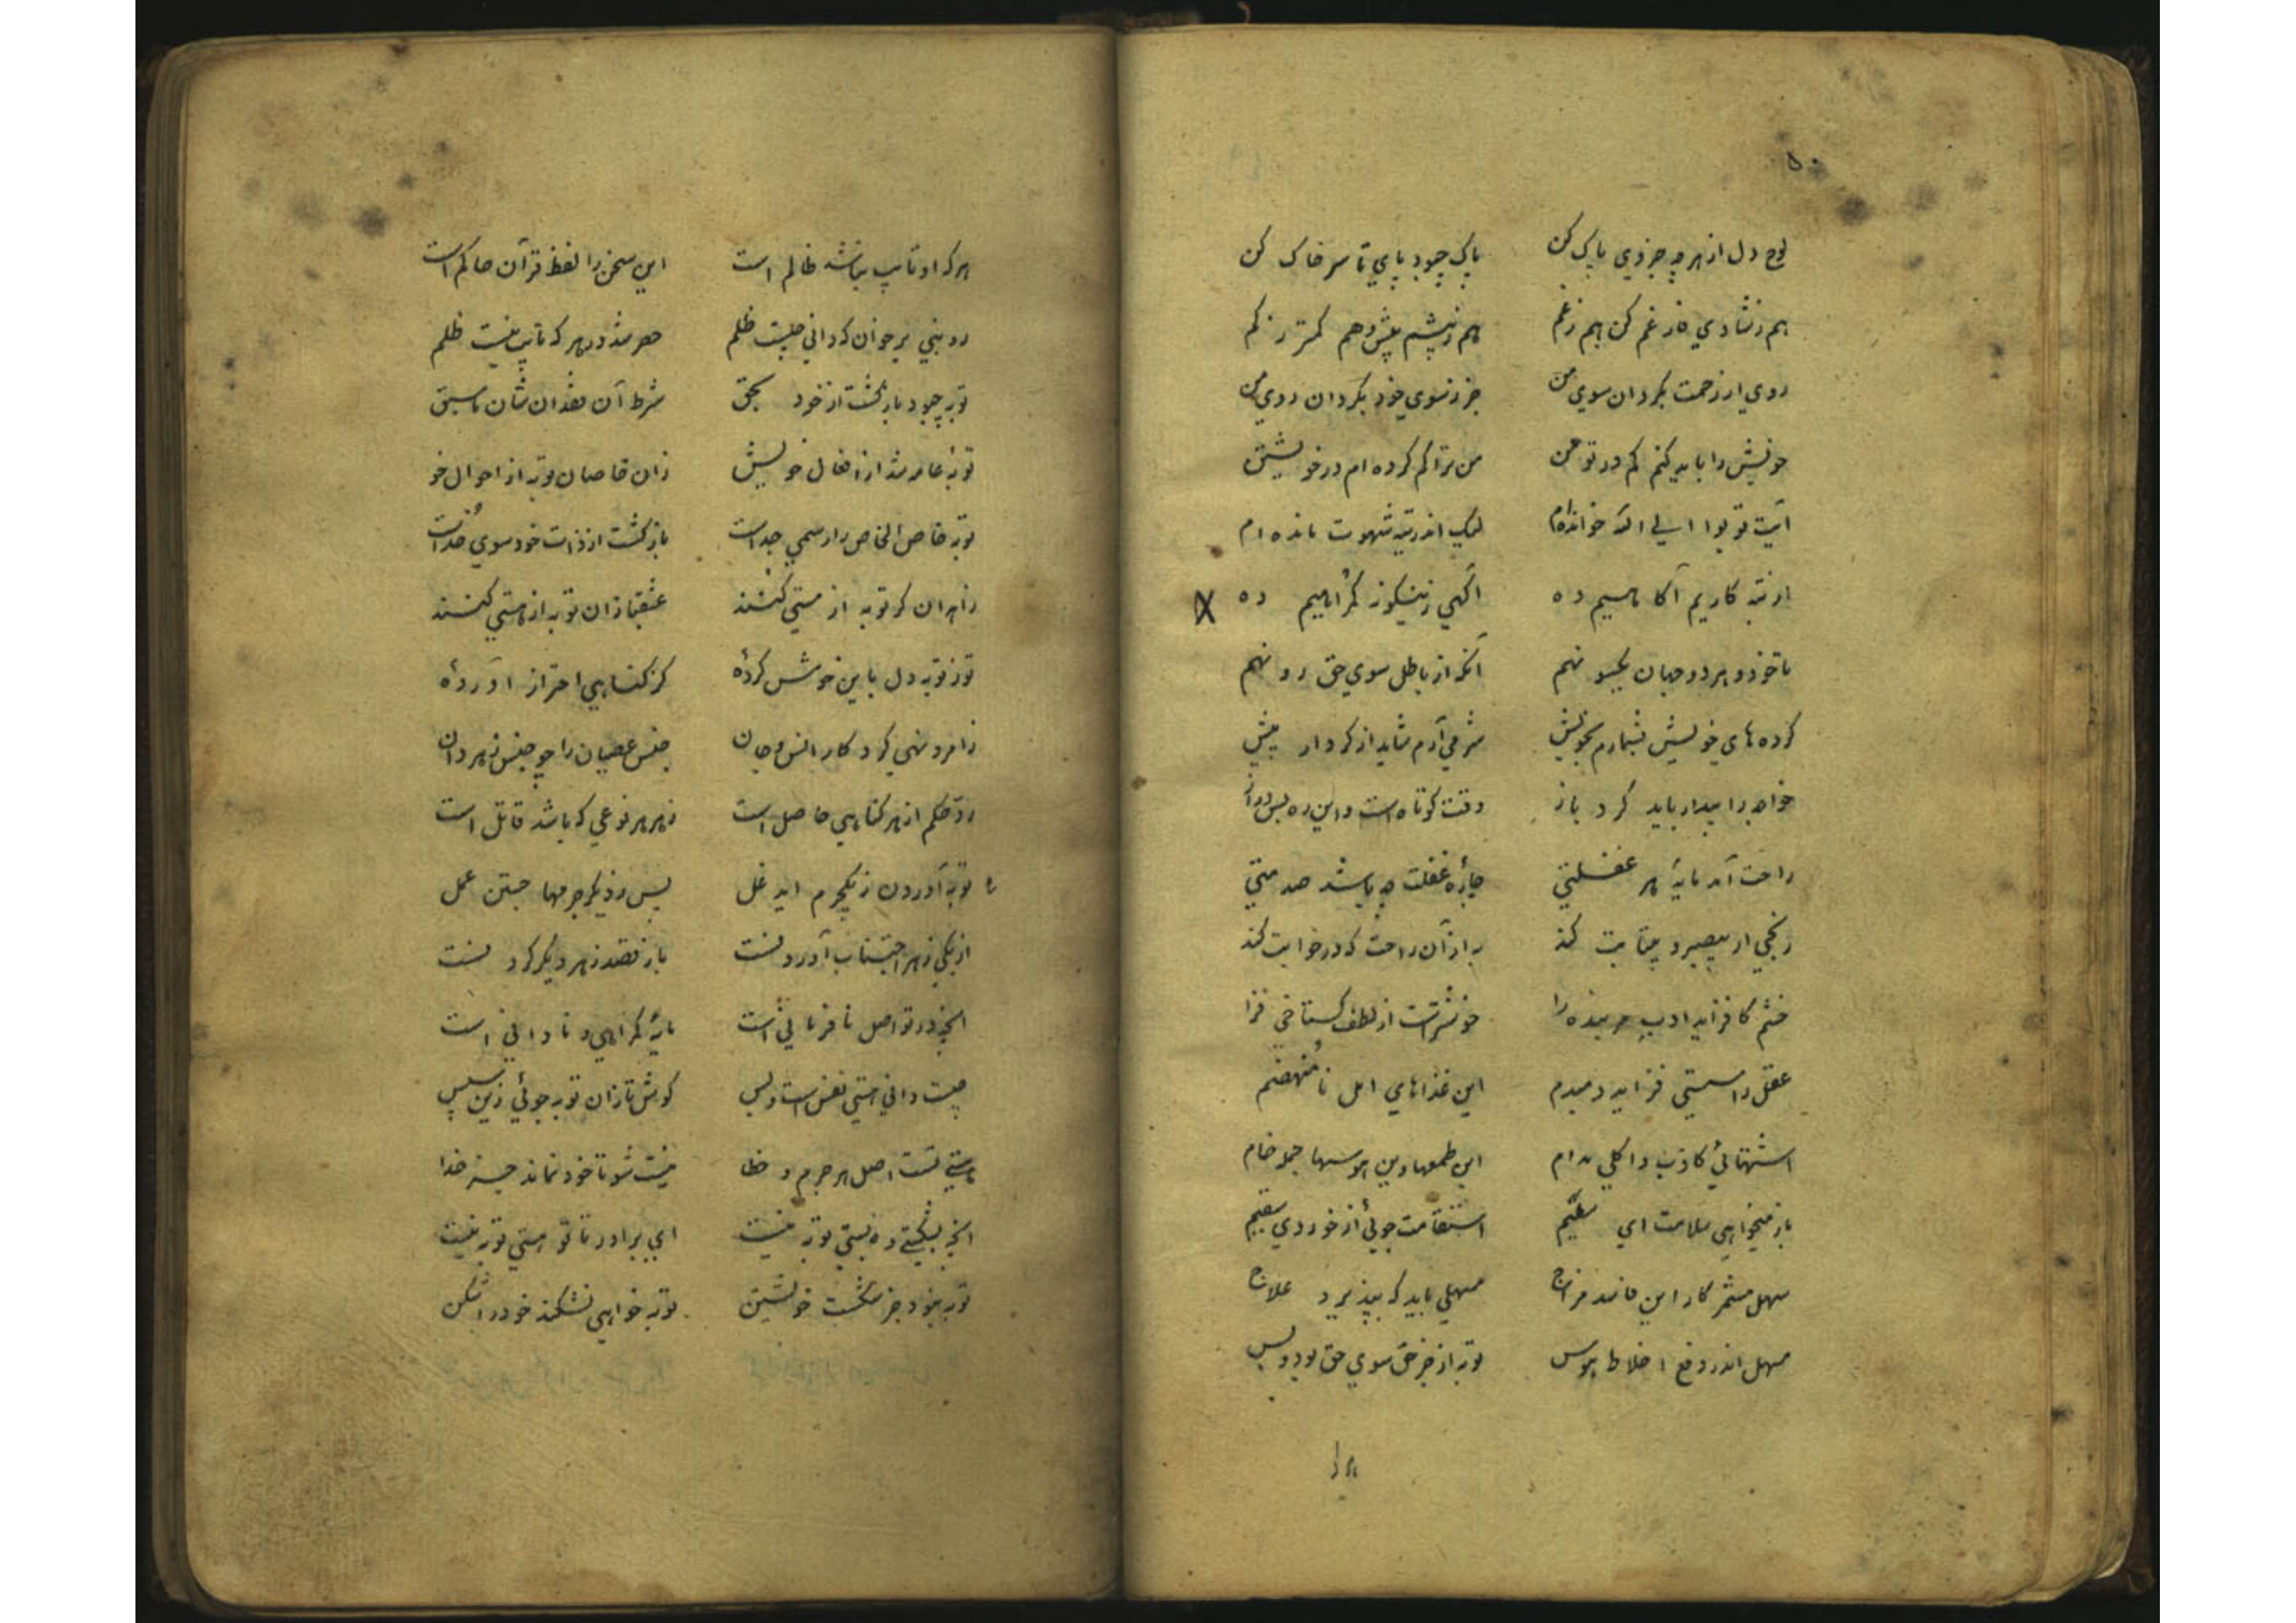 ۵۰
لوح دل از هر چه جز وی پاک کن پاک چبود پای تا سر خاک کن
هم ز شادی فارغم کن هم ز غم هم ز بیشم بیش و هم کمتر ز کم
روی از رحمت بگردان سوی من جز ز سوی خود بگردان روی من
خویش را باید کنم کم در تو من من ترا کم کرده ام در خویشتن
آیت توبوا الی الله خوانده ام لیک اندر تیه شهوت مانده ام
از تبه کاریم آکاهیم ده آکهی زینکونه کمراهیم ده
تا خود و هر دو جهان یکسو نهم آنکه از باطل سوی حق رو نهم
کرده های خویش بشمارم بخویش شرمی آرم شاید از کردار پیش
خواجه را بیدار باید کرد باز وقت کوتاه است و این ره بس دراز
راحت آمد مایهٔ هر غفلتی چارهٔ غفلت چه باشد محنتی
رنجی ار بیصبر و بیتابت کند به از آن راحت که در خوابت کند
خشم کافزاید ادب مر بنده را خوشترست از لطف کستاخی فزا
عقل را سستی فزاید دمبدم این غذاهای امل نامنهضم
اشتهائی کاذب و اکلی مدام این طمعها وین هوسها جمله خام
باز میخواهی سلامت ای سقیم استقامت جوئی از خوردی سقیم
سهل مشمر کار این فاسد مزاج مسهلی باید که بپذیرد علاج
مسهل اندر دفع اخلاط هوس توبه از جز حق سوی حق بود و بس
هر که
هر که او تایب نباشد ظالم است این سخن را لفظ قرآن حاکم است
رو نبی بر خوان که دانی چیست ظلم حصر شد در هر که تایب نیست ظلم
توبه چبود بازکشت از خود بحق شرط آن فقدان شان ماسبق
توبهٔ عامه شد از افعال خویش زان خاصان توبه از احوال خو
توبه خاص الخاص را رسمی جداست بازکشت از ذات خود سوی خداست
زاهدان کر توبه از مستی کنند عشقبازان توبه از هستی کنند
تو ز توبه دل باین خوش کردهٔ کز کناهی احتراز آوردهٔ
ز امر و نهی کرد کار انس و جان جنس عصیان را چو جنس زهر دان
رد حکم از هر کناهی حاصل است زهر هر نوعی که باشد قاتل است
توبه آوردن ز یکجرم ای دغل پس ز دیکر جرمها جستن عمل
از یکی زهر اجتناب آوردنست باز قصد زهر دیکر کردنست
آنچه در تو اصل نافرمانی است مایهٔ کمراهی و نادانی است
چیست دانی هستی نفس است و بس کوش تا زان توبه جوئی زین سپس
هستی تست اصل هر جرم و خطا نیست شو تا خود نماند جز خدا
آنچه بشکستی و بستی توبه نیست ای برادر تا تو هستی توبه نیست
توبه نبود جز شکست خویشتن توبه خواهی نشکند خود را شکن